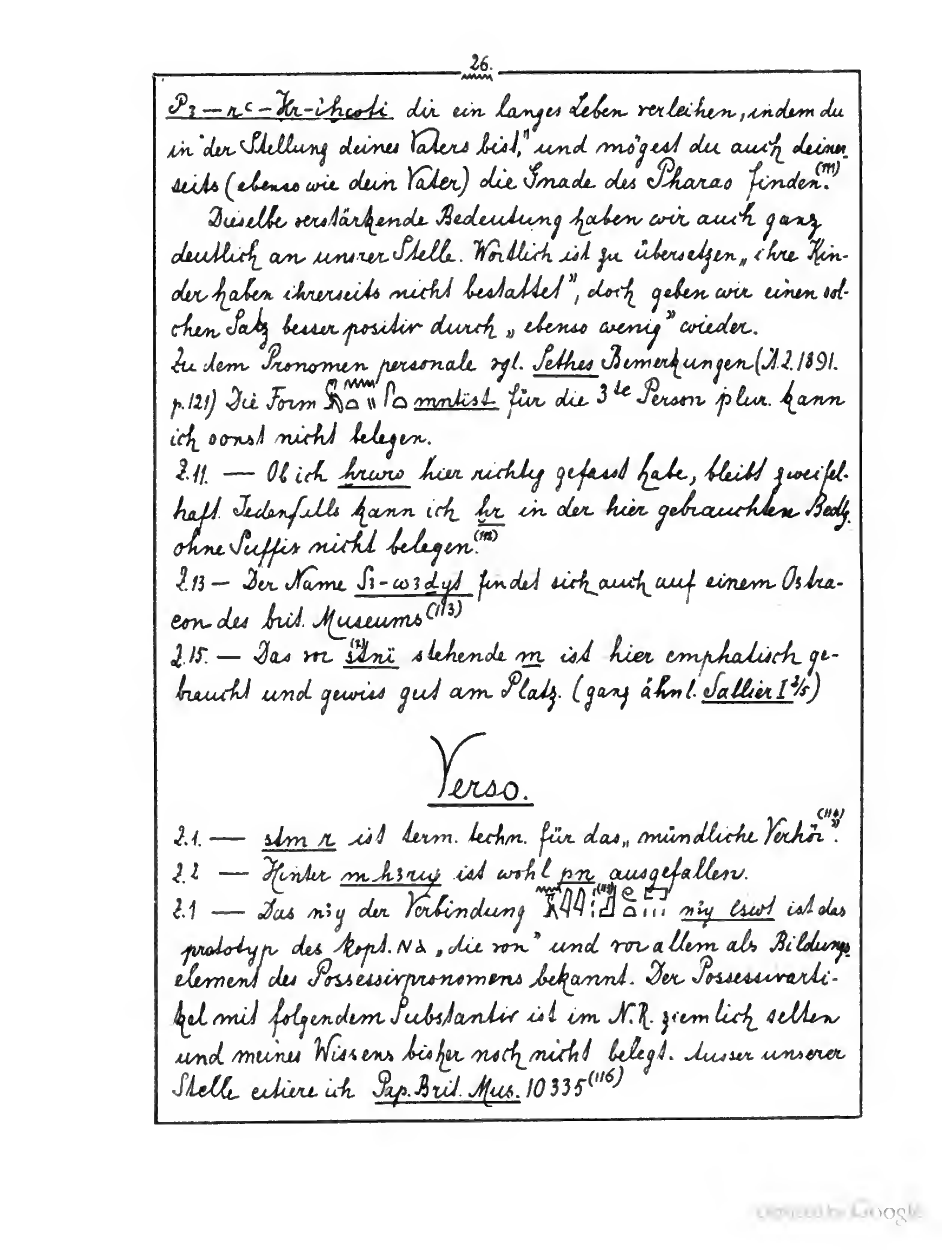 26.
P3-rc-Hr-ihcoti dir ein langes Leben verleihen, indem du
in "der Stellung deines Vaters bist," und mögest du auch deiner
seits (ebenso wie dein Vater) die Gnade des Pharao finden." (111)
Dieselbe verstärkende Bedeutung haben wir auch ganz
deutlich an unsrer Stelle. Wörtlich ist zu übersetzen „ihre Kin-
der haben ihrerseits nicht bestattet", doch geben wir einen sol-
chen Satz besser positiv durch „ebenso wenig" wieder.
Zu dem Pronomen personale vgl. Sethes Bemerkungen (Ä.Z. 1891.
p. 121) Die Form mntist für die 3te Person plur. kann
ich sonst nicht belegen.
Z. 11. — Ob ich hrwro hier richtig gefasst habe, bleibt zweifel-
haft. Jedenfalls kann ich hr in der hier gebrauchten Bedtg.
ohne Suffix nicht belegen. (112)
Z. 13 — Der Name S3-w3dyt findet sich auch auf einem Ostra-
con des brit. Museums (113)
Z. 15. — Das vor stehende m ist hier emphatisch ge-
braucht und gewiss gut am Platz. (ganz ähnl. Sallier I 3/5)
Verso.
Z. 1. — stm r ist term. techn. für das „mündliche Verhör". (114)
Z. 2 — Hinter m h3rwy ist wohl pn ausgefallen.
Z. 1 — Das n3y der Verbindung n3y iswt ist das
prototyp des kopt. Nⲁ „die von" und vor allem als Bildungs
element des Possessivpronomens bekannt. Der Possessivarti-
kel mit folgendem Substantiv ist im N.R. ziemlich selten
und meines Wissens bisher noch nicht belegt. Ausser unserer
Stelle citiere ich Pap. Brit. Mus. 10335 (116)
Digitized by Google